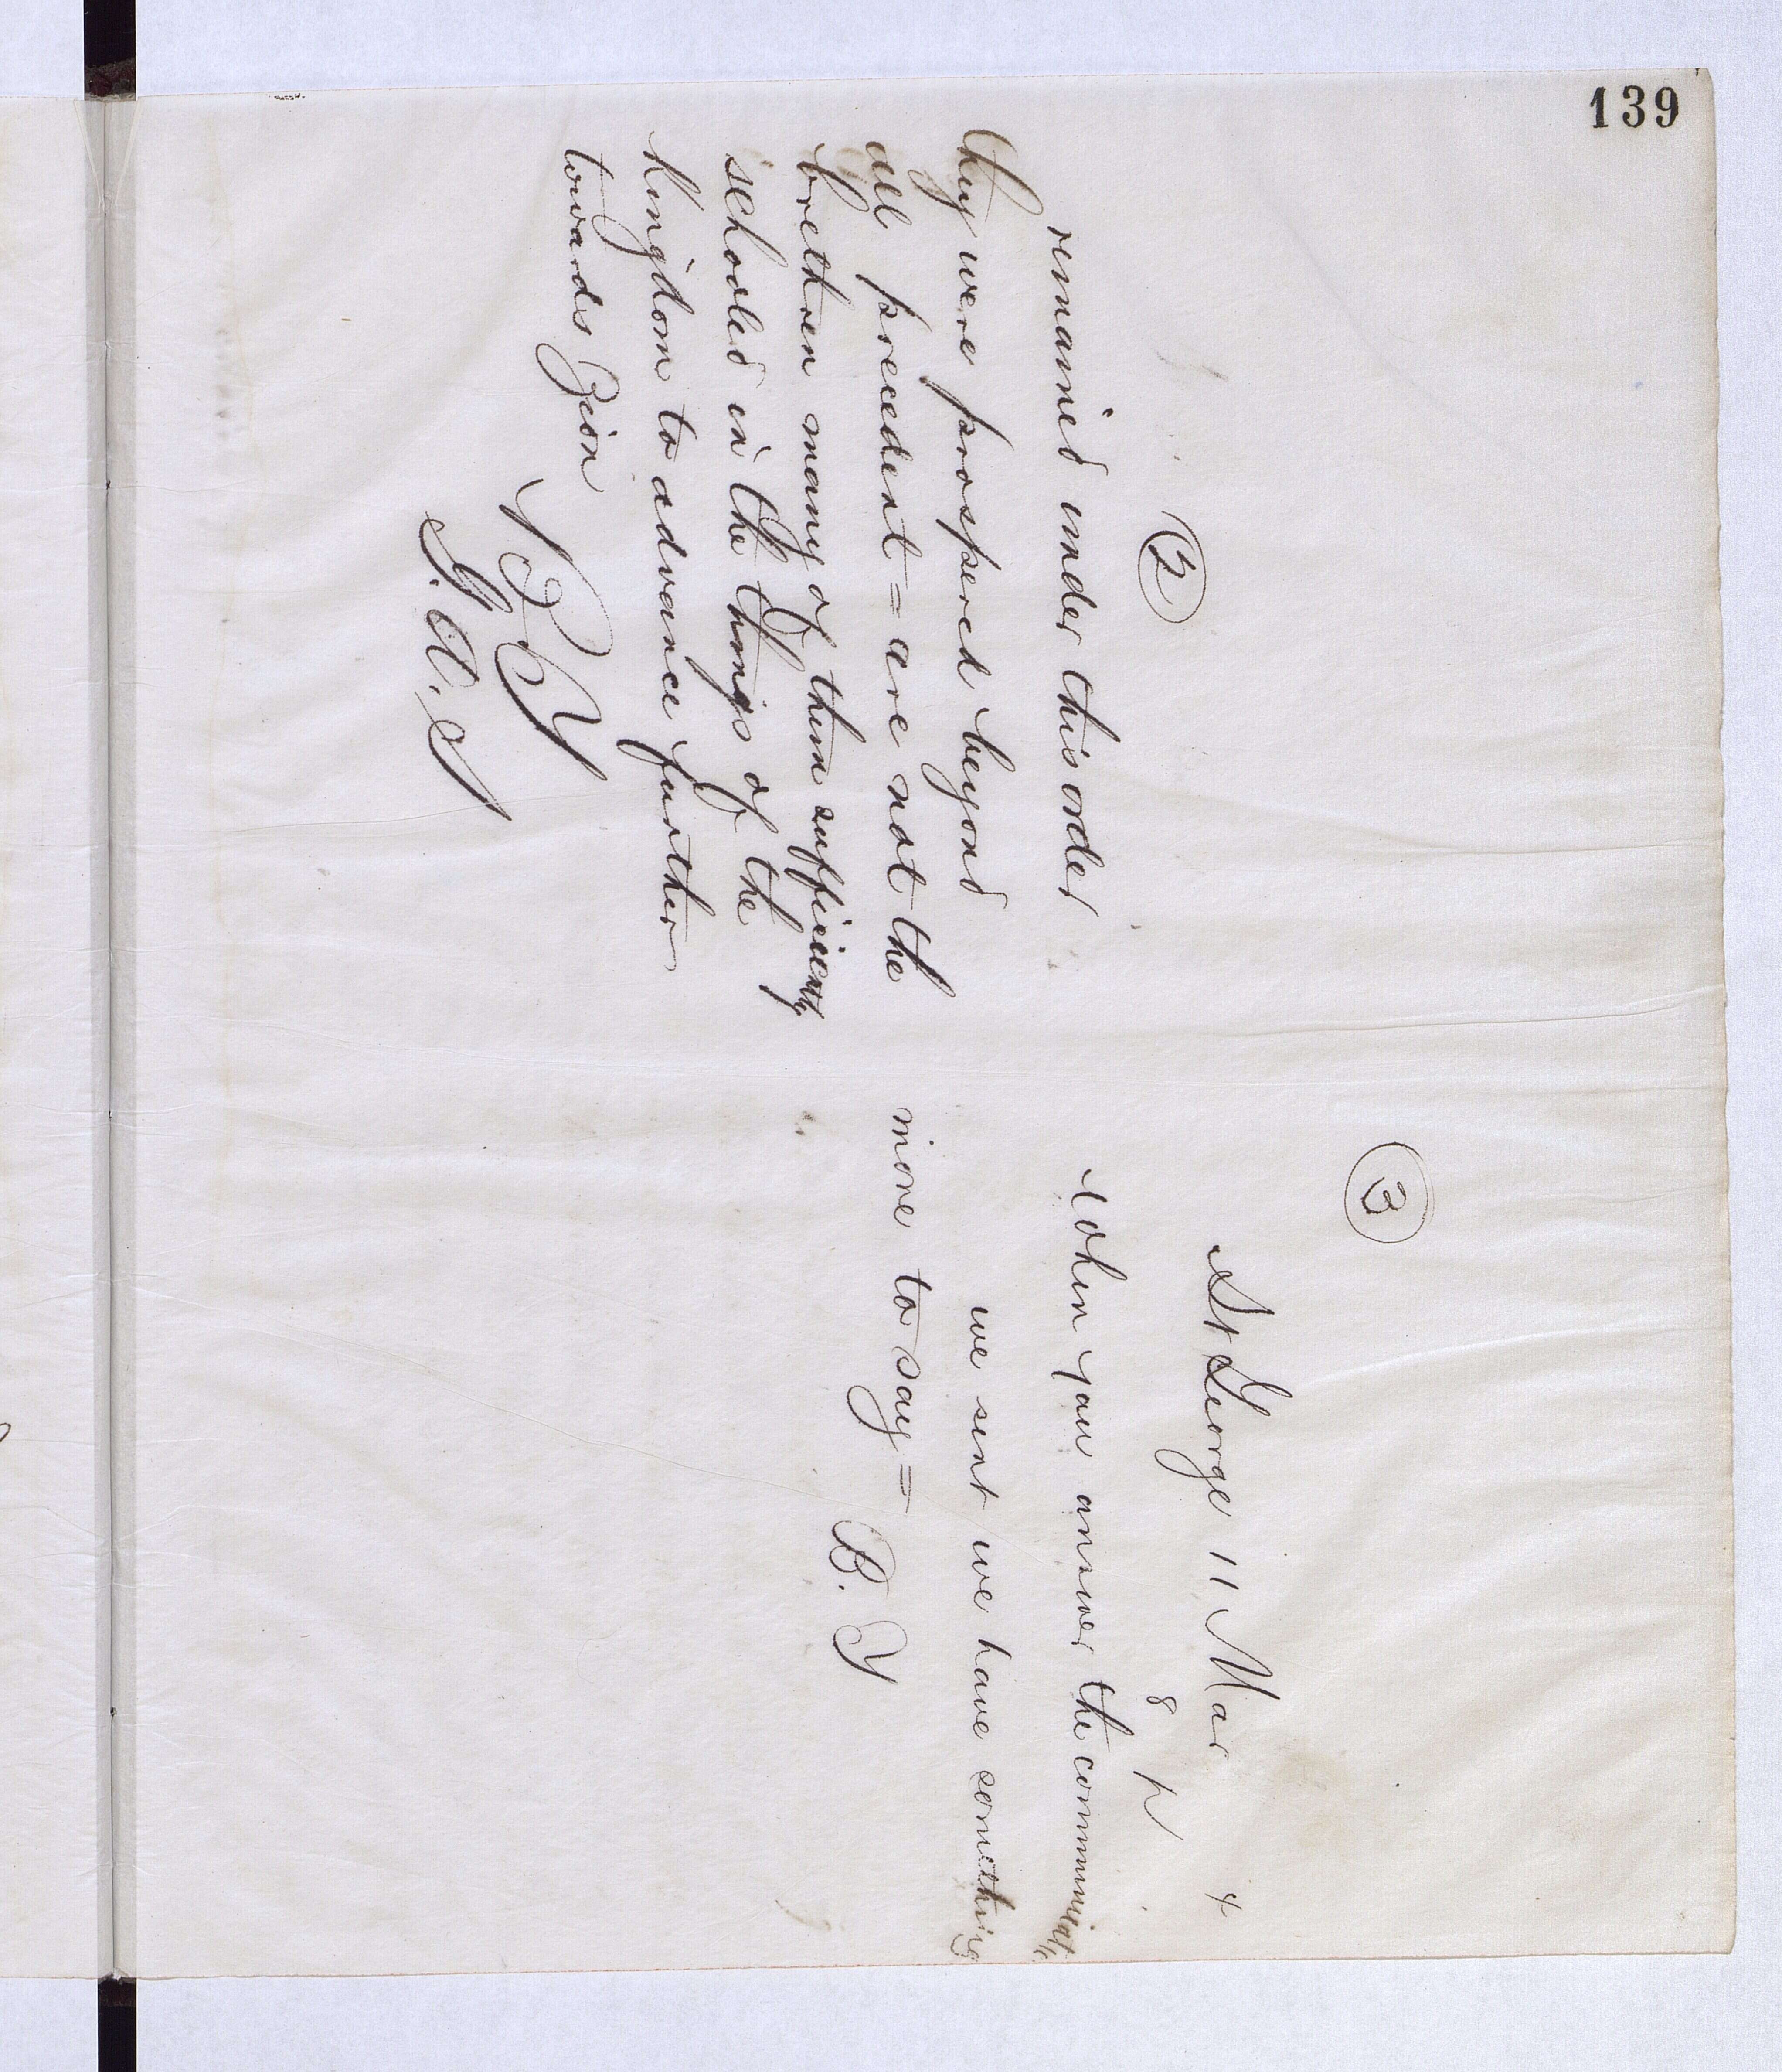 139
2
remained under this order
they were prospered beyond
all precedent = are not the
brethren many of them sufficiently
schooled in the things of the
kingdom to advance further
towards Zion
B Y
G. A. S
3
St George 11 Mar 4
8 P
When you answer the communicatn
we sent we have something
more to say = B. Y